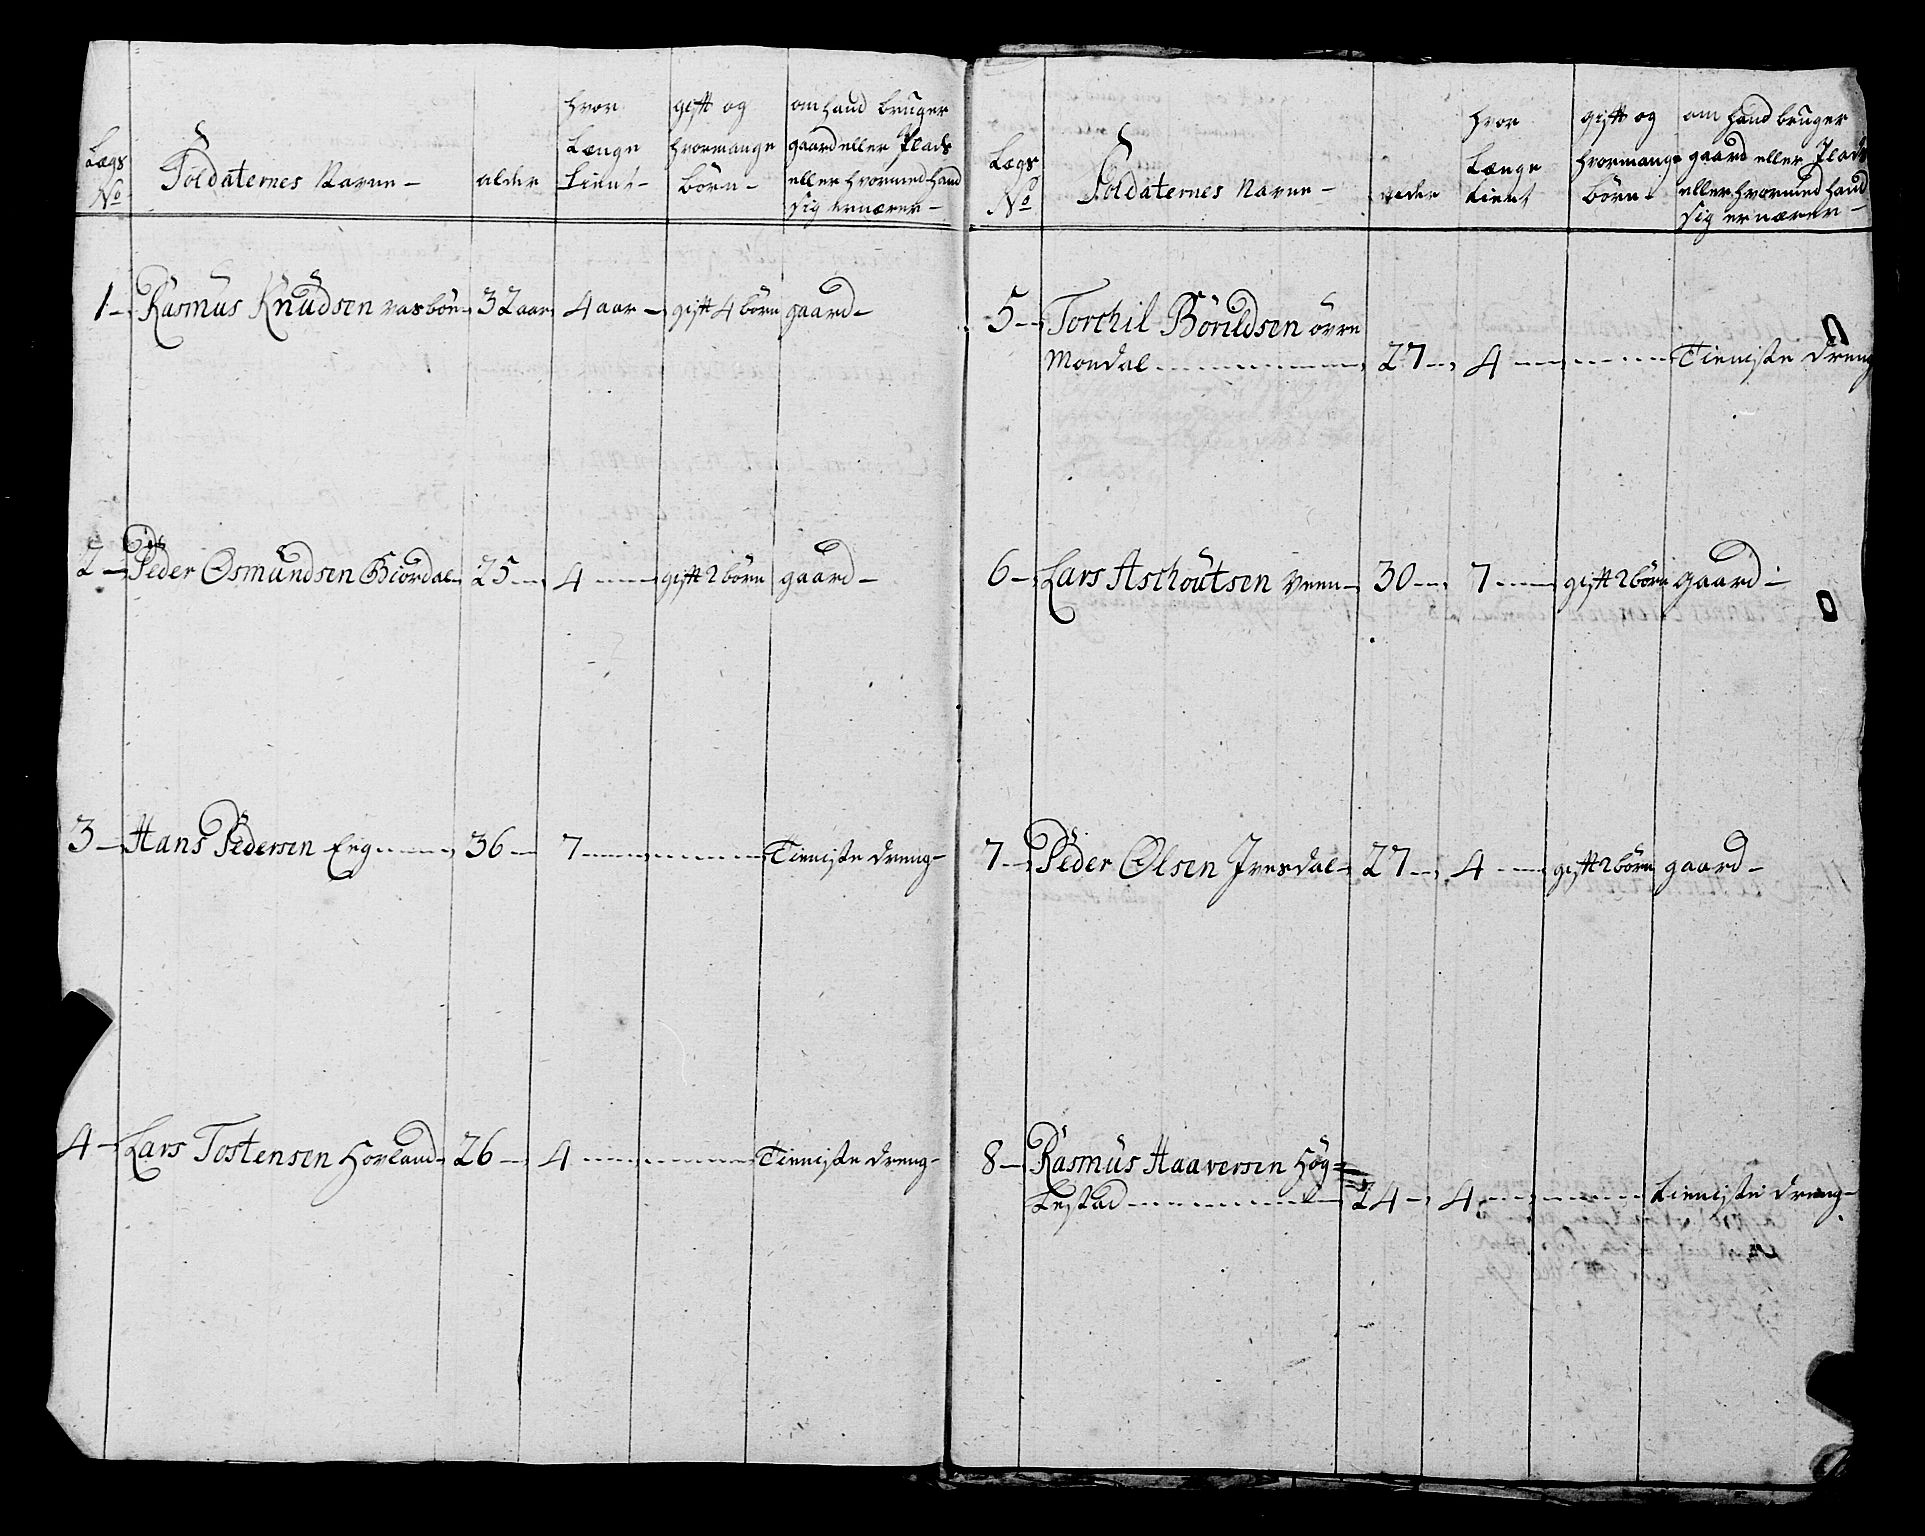 Lægs No
Soldaternes Navne -
alder
hvor Længe tient -
gift og hvormange börn -
om hand bruger gaard eller Plads eller hvormed hand sig ernærer -
1 - Rasmus Knudsen vasbön - 32 aar 4 aar - gift 4 börn gaard -
2 - Peder Osmundsen Giördal - 25 - 4 - gift 2 börn gaard -
3 - Hans Pedersen Eeg - 36 - 7 - Tieniste dreng -
4 - Lars Tostensen Hovland - 26 - 4 - Tieniste dreng -
Lægs No
Soldaternes Navne -
alder
hvor Længe tient
gift og hvormange börn -
om hand bruger gaard eller Plads eller hvormed hand sig ernærer -
5 - Torchil Börildsen övre
Mondal - 27 - 4 - Tieniste dreng
6 - Lars Aschoutsen Veen - 30 - 7 - gift 2 börn gaard -
7 - Peder Olsen Ivesdal - 27 - 4 - gift 2 börn gaard -
8 - Rasmus Haaversen Hög=
Lestad - 24 - 4 - tieniste dreng -